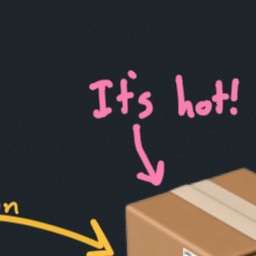 It's hot!